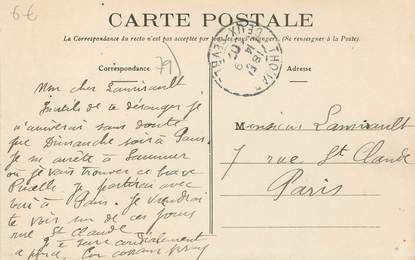 6€
CARTE POSTALE
La Correspondance du recto n'est pas acceptée par tous les pays étrangers. (Se renseigner à la Poste).
79
Correspondance
Adresse
THOUARS
DEUX-SEVRES
Mon cher Lamirault
Inutile de te déranger je
n'arriverai sans doute
que Dimanche soir à Paris.
Je m'arrête à Saumur
où je vais trouver ce brave
Je partirai avec
à Paris. Je viendrai
te voir un de ces jours
rue St Claude
je serre cordialement
Monsieur Lamirault
7 rue St Claude
Paris